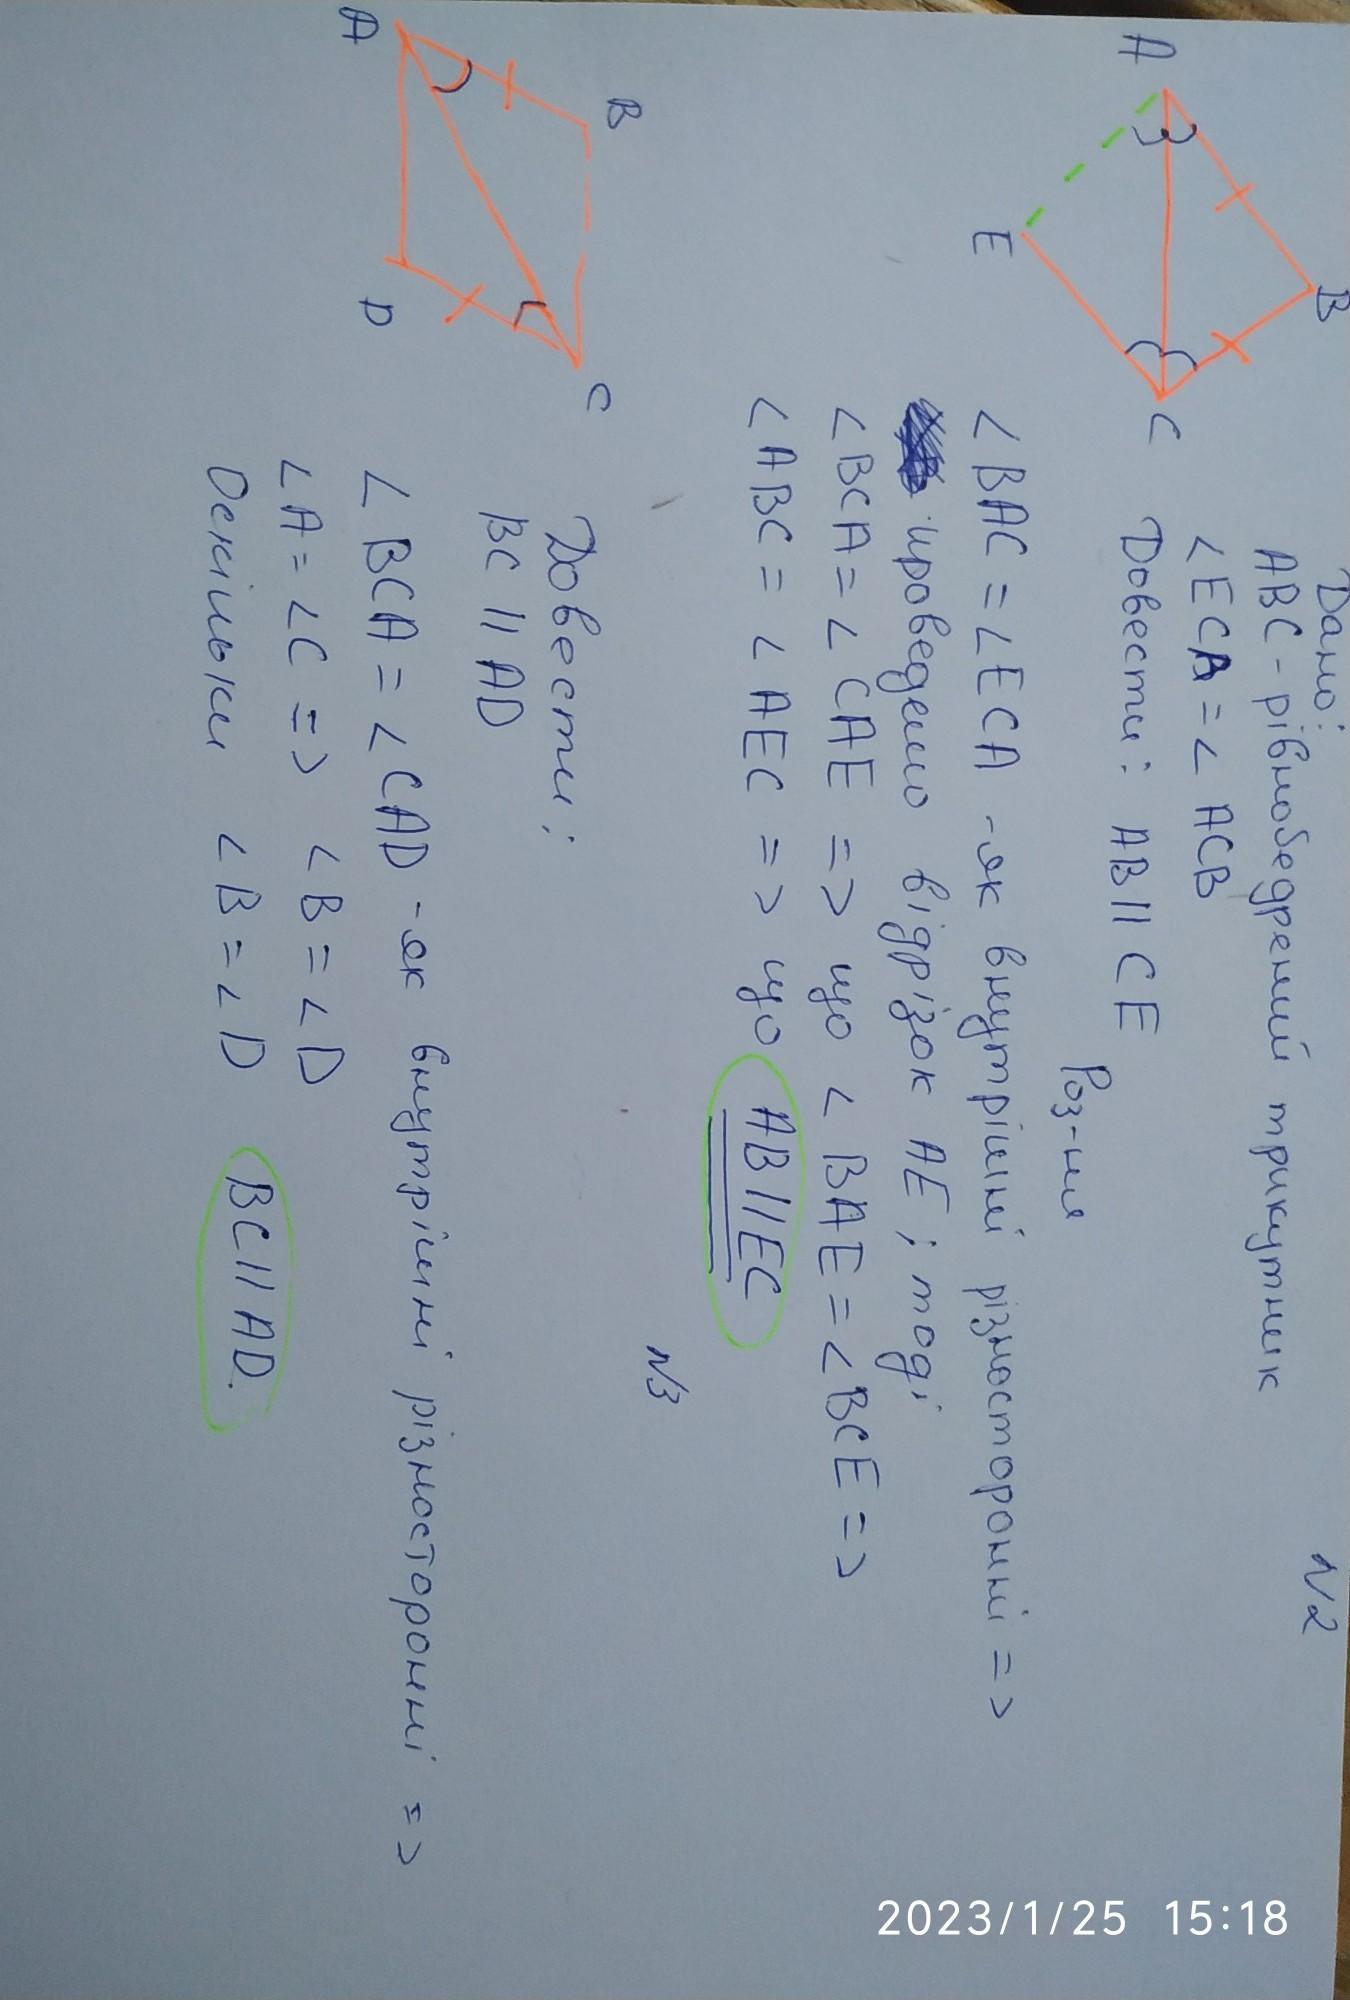 N2
Дано:
ABC - рівнобедрений трикутник
<ECA = < ACB
Довести: AB || CE
Роз-ня
A
B
C
E
< BAC = < ECA - як внутрішні різносторонні =>
проведемо відрізок AE; тоді
<BCA = < CAE => що < BAE = < BCE =>
< ABC = < AEC => що AB || EC
N3
A
B
C
D
Довести:
BC || AD
< BCA = < CAD - як внутрішні різносторонні =>
<A = <C => <B = < D
Оскільки <B = <D BC || AD.
2023/1/25 15:18